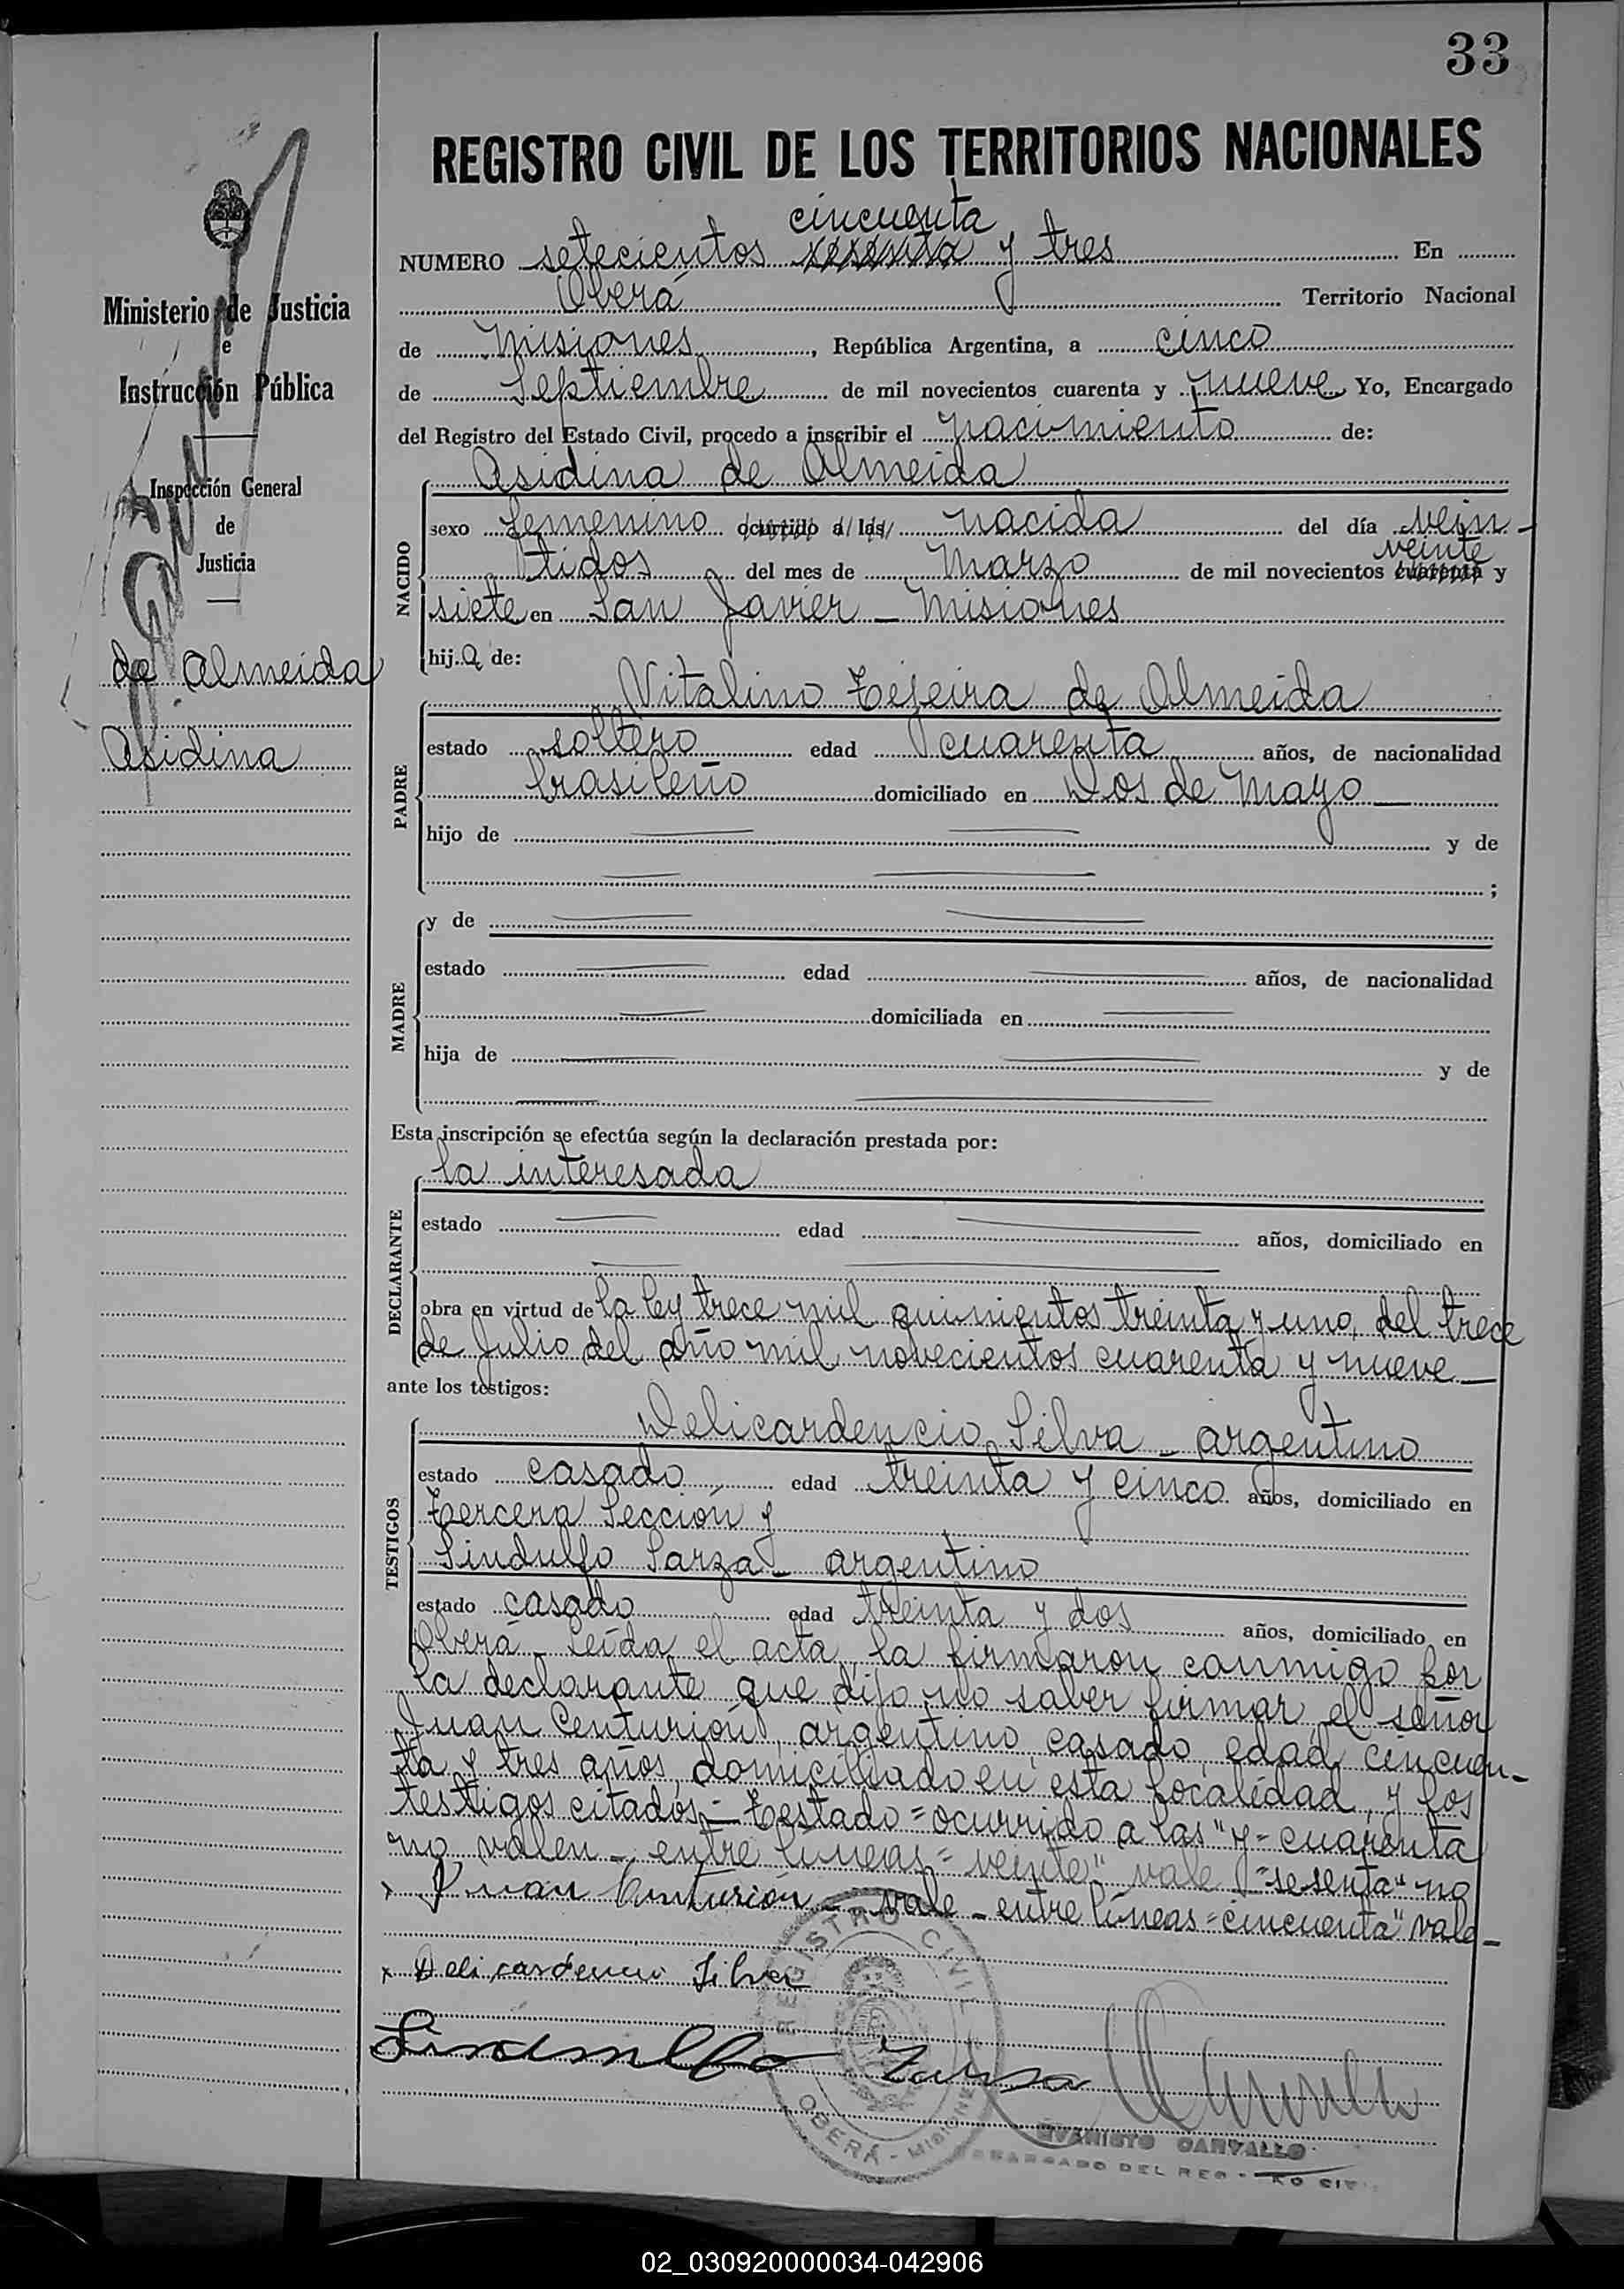 33
REGISTRO CIVIL DE LOS TERRITORIOS NACIONALES
cincuenta
NUMERO setecientos sesenta y tres En
Oberá Territorio Nacional
de Misiones, República Argentina, a cinco
de Septiembre de mil novecientos cuarenta y nueve Yo, Encargado
del Registro del Estado Civil, procedo a inscribir el nacimiento de:
Ministerio de Justicia
e
Instrucción Pública
Inspección General
de
Justicia
de Almeida
Asidina
NACIDO
Asidina de Almeida
sexo femenino ocurrido a las nacida del día vein-
veinte
tidos del mes de Marzo de mil novecientos cuarenta y
siete en San Javier - Misiones
hija de:
PADRE
Vitalino Tejeira de Almeida
estado soltero edad cuarenta años, de nacionalidad
brasileño domiciliado en Dos de Mayo
hijo de y de
;
MADRE
y de
estado edad años, de nacionalidad
domiciliada en
hija de y de
Esta inscripción se efectúa según la declaración prestada por:
DECLARANTE
la interesada
estado edad años, domiciliado en
obra en virtud de la ley trece mil quinientos treinta y uno, del trece
de Julio del año mil novecientos cuarenta y nueve
ante los testigos:
TESTIGOS
Delicardencio Silva - argentino
estado casado edad treinta y cinco años, domiciliado en
Tercera Sección y
Sindulfo Sarza - argentino
estado casado edad treinta y dos años, domiciliado en
Oberá - Leída el acta, la firmaron conmigo por
la declarante que dijo no saber firmar, el señor
Juan Centurión, argentino, casado, edad cincuen-
ta y tres años, domiciliado en esta localidad, y los
testigos citados - Testado = ocurrido a las" y = cuarenta
no valen - entre líneas = veinte" vale = sesenta" no
Juan Centurión - vale - entre líneas = cincuenta" vale -
x Delicardencio Silva
Sindulfo Zarza
REGISTRO CIVIL
OBERÁ - MISIONES
EVARISTO CARVALLO
02_030920000034-042906